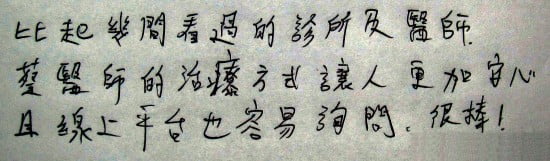 比起幾間看過的診所及醫師.
蔡醫師的治療方式讓人更加安心
且線上平台也容易詢問。很棒!